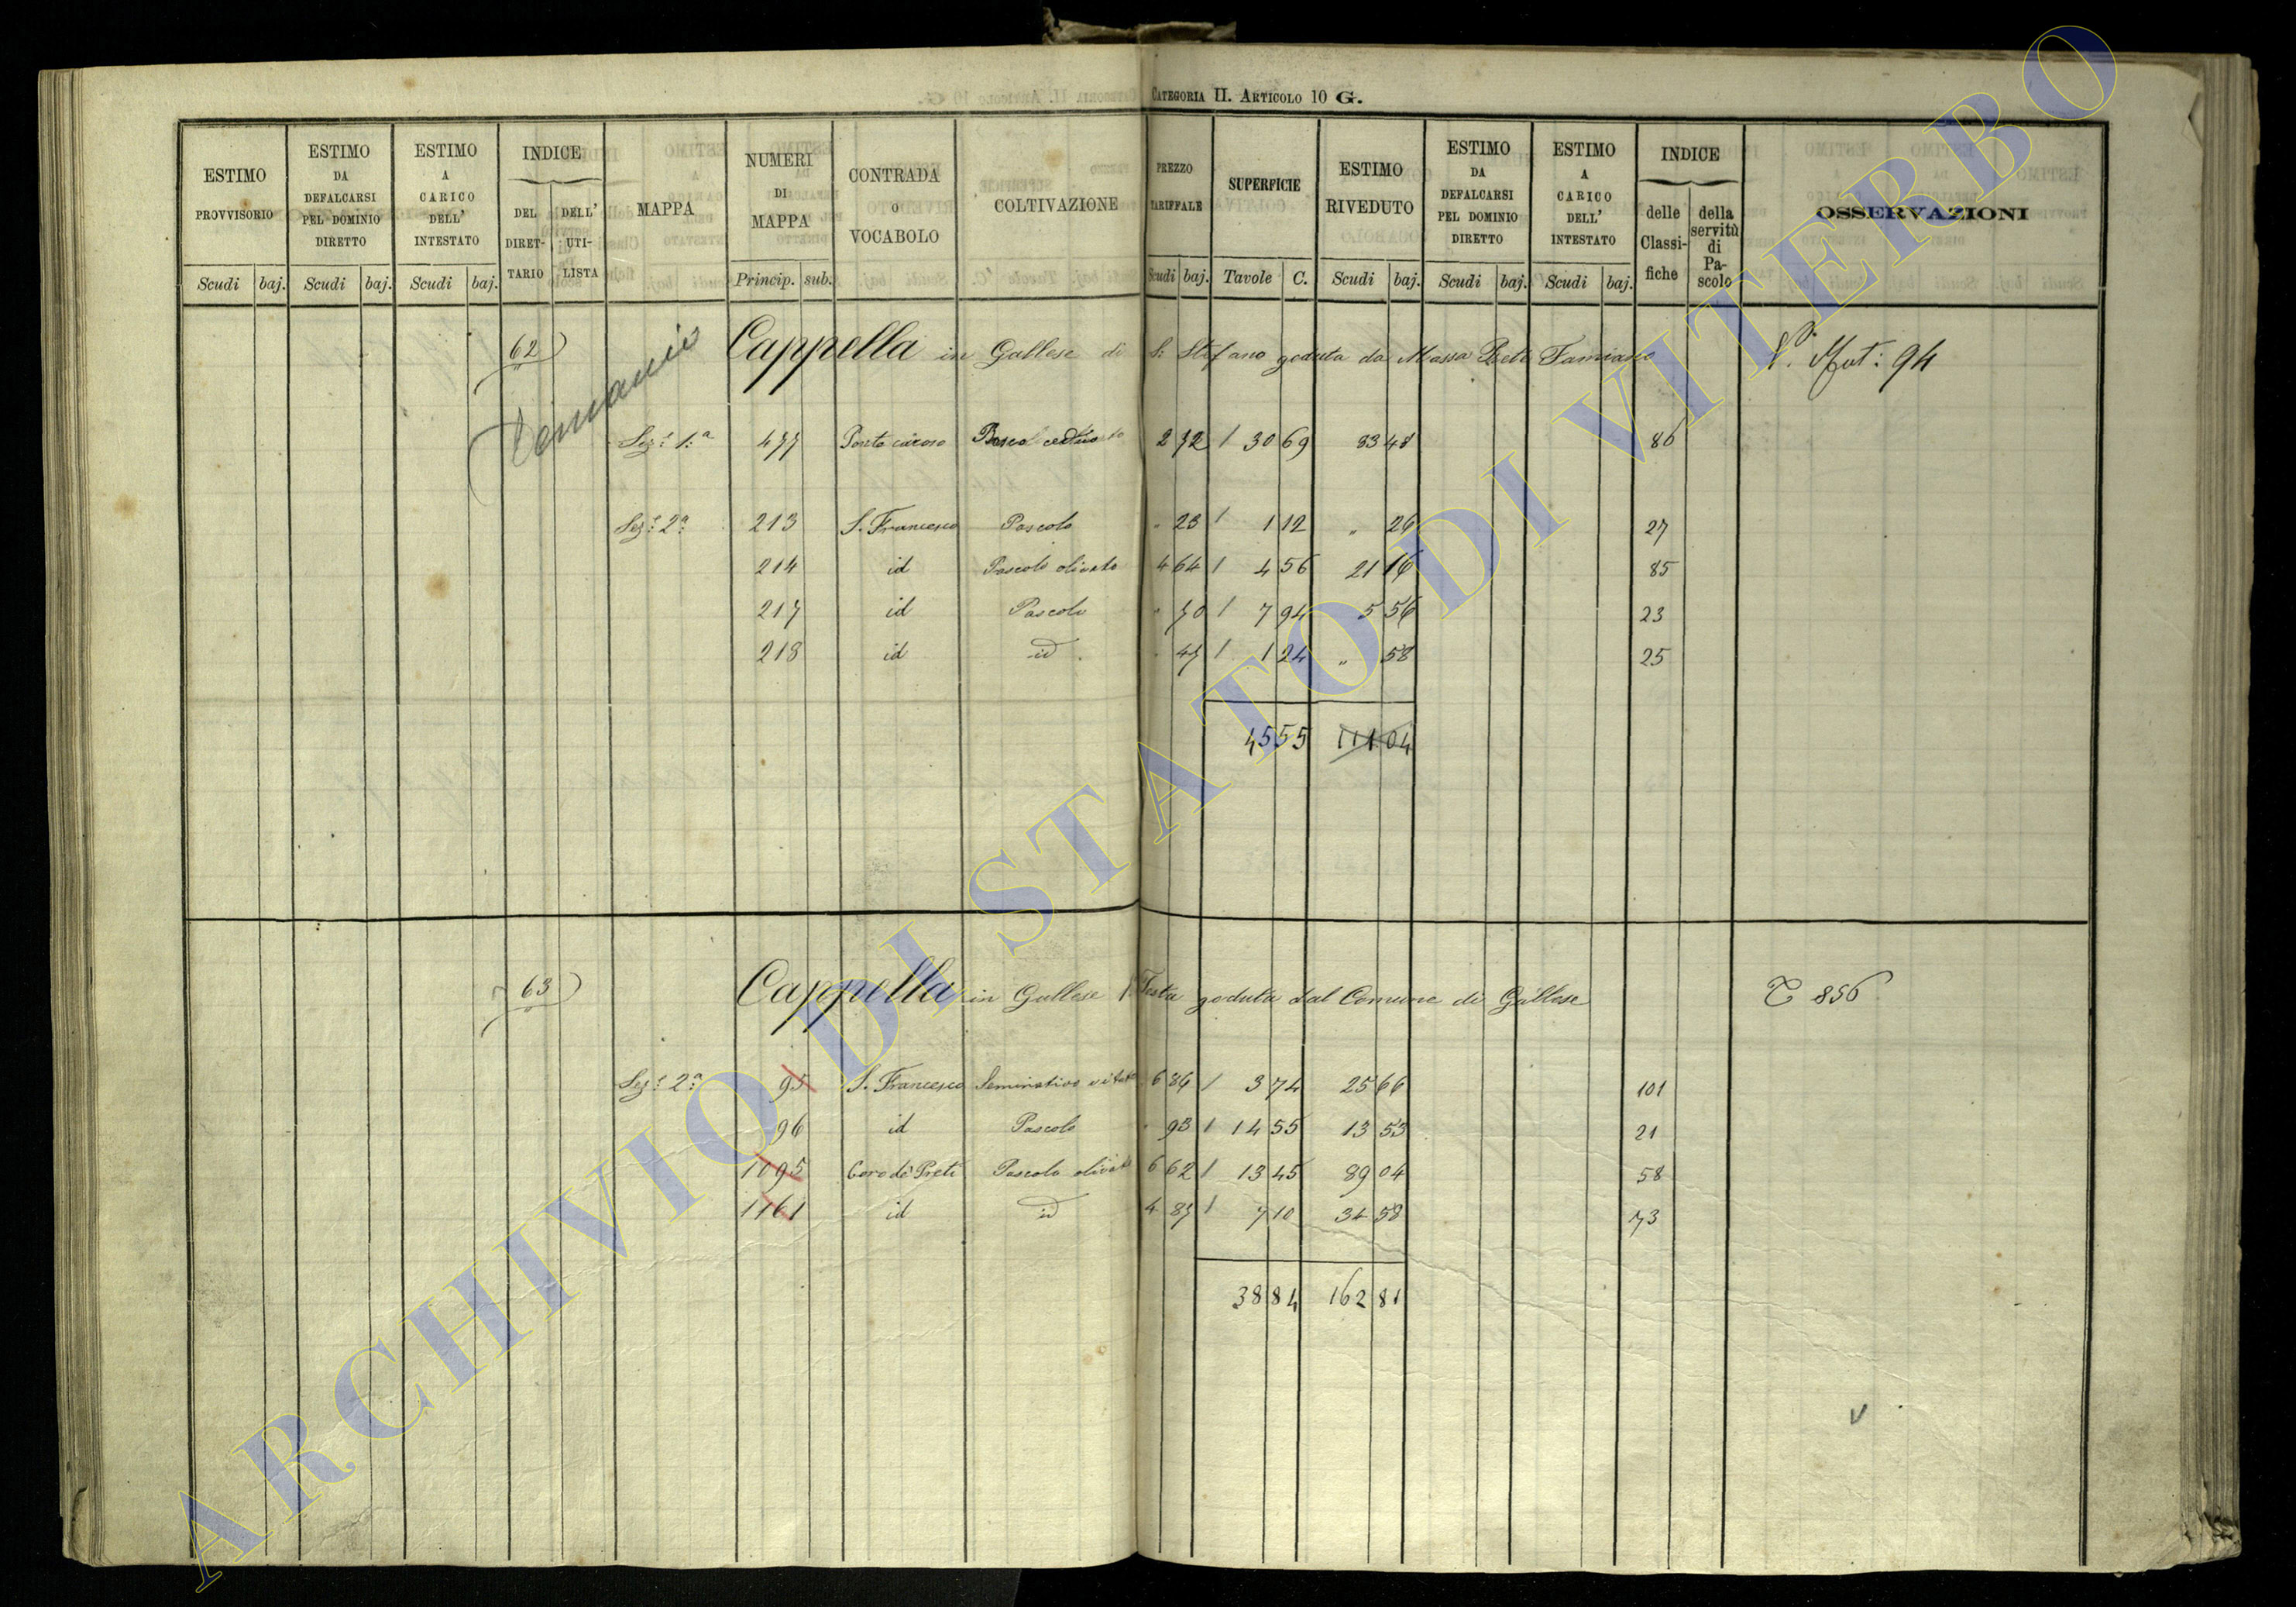 CATEGORIA II. ARTICOLO 10 G.
ESTIMO PROVVISORIO Scudi baj.
ESTIMO DA DEFALCARSI PEL DOMINIO DIRETTO Scudi baj.
ESTIMO A CARICO DELL' INTESTATO Scudi baj.
INDICE DEL DIRETTARIO DELL' UTILISTA
MAPPA
NUMERI DI MAPPA Princip. sub.
CONTRADA O VOCABOLO
COLTIVAZIONE
PREZZO TARIFFALE Scudi baj.
SUPERFICIE Tavole C.
ESTIMO RIVEDUTO Scudi baj.
ESTIMO DA DEFALCARSI PEL DOMINIO DIRETTO Scudi baj.
ESTIMO A CARICO DELL' INTESTATO Scudi baj.
INDICE delle Classifiche della servitù di Pascolo
OSSERVAZIONI
62) Cappella in Gallese di S: Stefano goduta da Massa Famiano Mut: 94
Demanio
Sez: 1:a 477 Bosco ceduo 2 72 / 30 69 83 48 86
Sez: 2a 213 S. Francesco Pascolo " 23 / 1 12 " 26 27
214 id Pascolo olivato 4 64 / 4 56 21 16 85
217 id Pascolo " 70 / 7 94 5 56 23
218 id id " 47 / 1 24 " 58 25
45 55 111 04
63) Cappella in Gallese goduta dal Comune di Gallese 856
Sez: 2a 95 S. Francesco Seminativo vitato 6 86 / 3 74 25 66 101
96 id Pascolo " 93 / 14 55 13 53 21
1095 Coro de' Preti Pascolo olivato 6 62 / 13 45 89 04 58
1161 id id 4 87 / 7 10 34 58 73
38 84 162 81
V
ARCHIVIO DI STATO DI VITERBO